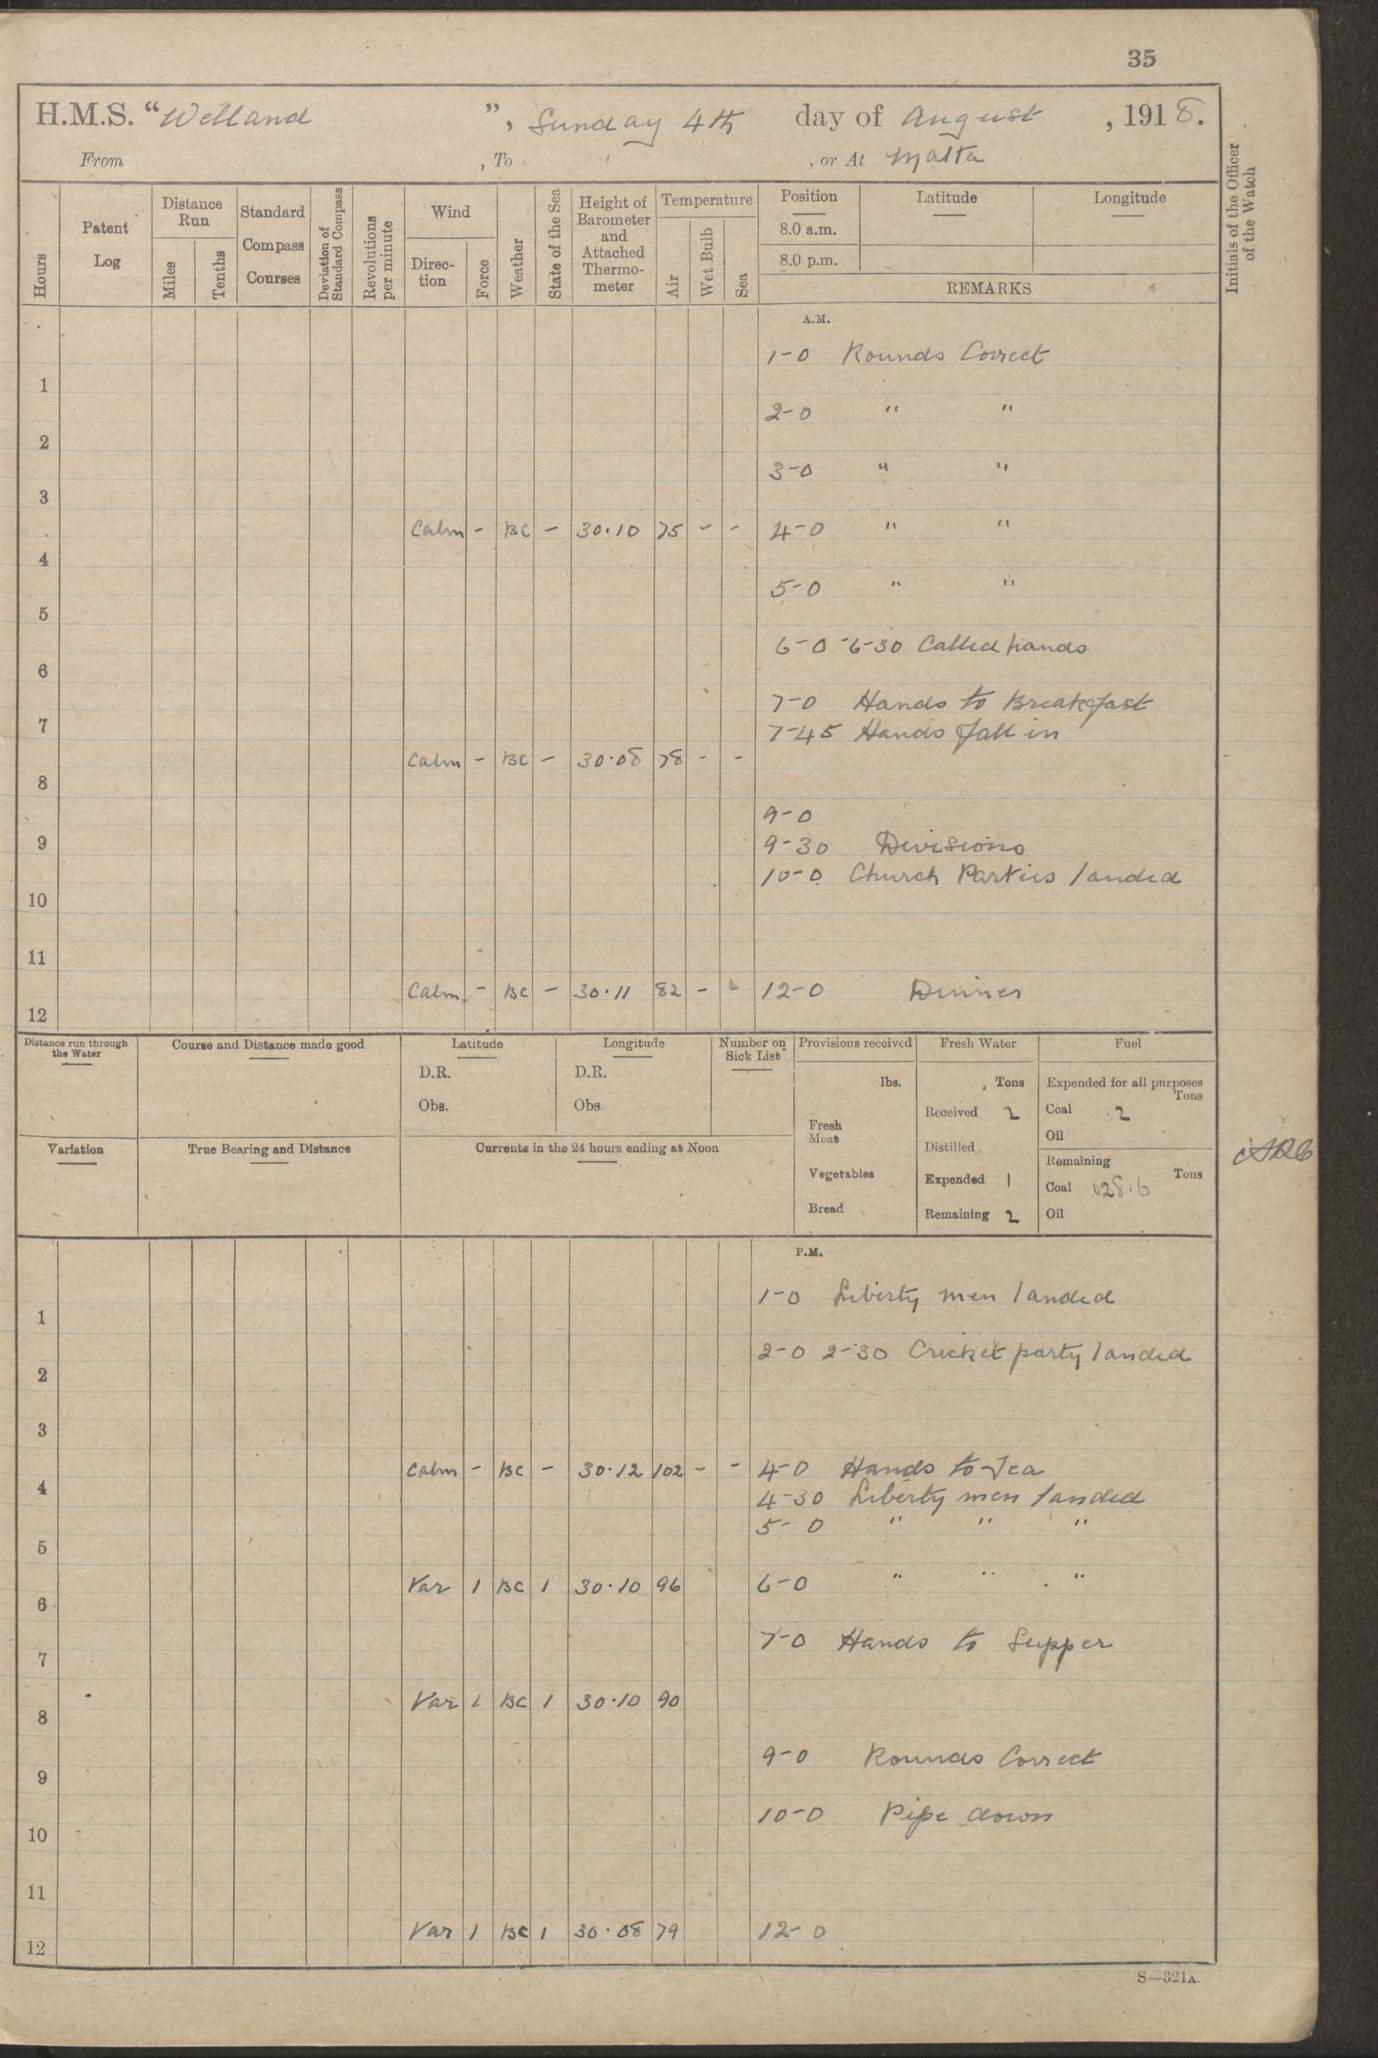 35
H.M.S. “Welland ”, Sunday 4th day of August , 1918.
From , To , or At Malta
Hours
Patent Log
Distance Run
Miles
Tenths
Standard Compass Courses
Deviation of Standard Compass
Revolutions per minute
Wind
Direc- tion
Force
Weather
State of the Sea
Height of Barometer and Attached Thermo- meter
Temperature
Air
Wet Bulb
Sea
Position Latitude Longitude
8.0 a.m.
8.0 p.m.
REMARKS
Initials of the Officer of the Watch
A.M.
1-0 Rounds Correct
1
2-0 " "
2
3-0 " "
3
Calm - BC - 30.10 75 - - 4-0 " "
4
5-0 " "
5
6-0 -6-30 Called hands
6
7-0 Hands to Breakfast
7
7-45 Hands fall in
Calm - BC - 30.08 78 - -
8
9-0
9
9-30 Divisions
10-0 Church Parties landed
10
11
Calm - BC - 30.11 82 - - 12-0 Dinner
12
Distance run through the Water
Course and Distance made good
Latitude
D.R.
Obs.
Longitude
D.R.
Obs.
Number on Sick List
Provisions received
lbs.
Fresh Meat
Vegetables
Bread
Fresh Water
Tons
Received 2
Distilled
Expended 1
Remaining 2
Fuel
Expended for all purposes
Tons
Coal .2
Oil
Remaining
Tons
Coal 128.6
Oil
Variation
True Bearing and Distance
Currents in the 24 hours ending at Noon
P.M.
1-0 Liberty men landed
1
2-0 2-30 Cricket party landed
2
3
Calm - BC - 30.12 102 - - 4-0 Hands to Tea
4
4-30 Liberty men landed
5-0 " " "
5
Var 1 BC 1 30.10 96 6-0 " " "
6
7-0 Hands to Supper
7
Var 1 BC 1 30.10 90
8
9-0 Rounds Correct
9
10-0 Pipe down
10
11
Var 1 BC 1 30.08 79 12-0
12
S—321A.